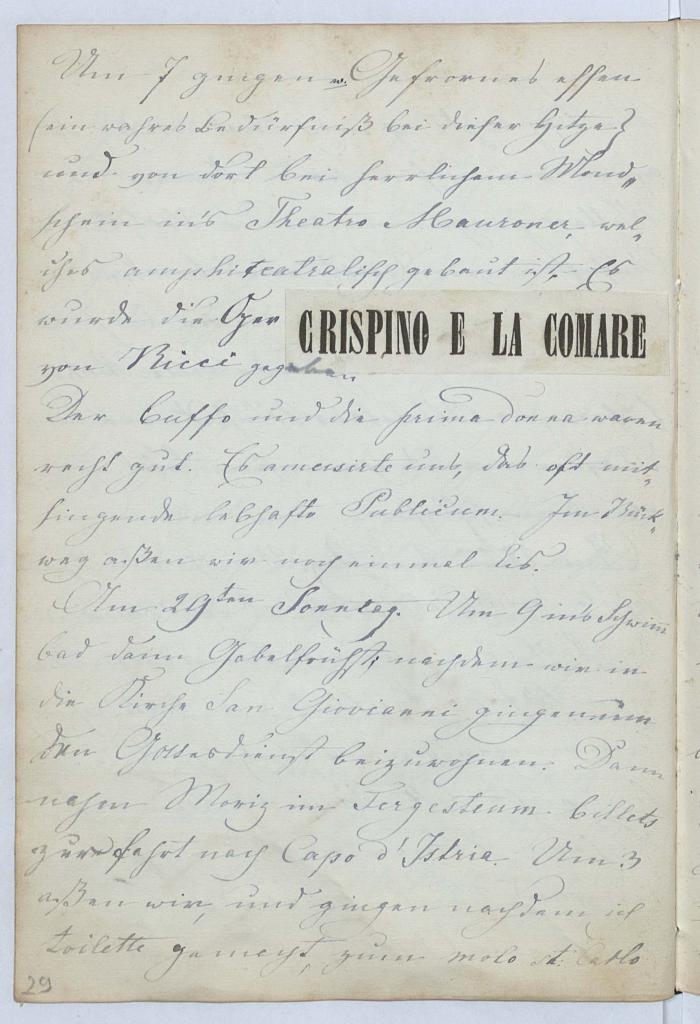 Um 7 gingen w. Gefrornes essen
(ein wahres Bedürfniß bei dieser Hitze)
und von dort bei herrlichem Mond„
schein in's Theatro Mauroner, wel„
ches amphiteatralisch gebaut ist. Es
wurde die Oper CRISPINO E LA COMARE
von Ricci gegeben
Der buffo und die prima donna waren
recht gut. Es amusirte uns, das oft mit„
singende lebhafte Publicum. Im Rück„
weg aßen wir noch einmal Eis.
Am 29ten Sonntag. Um 9 in's Schwimm
bad dann Gabelfrühst; nachdem wir in
die Kirche San Giovianni gingen um
den Gottesdienst beizuwohnen. Dann
nahm Moriz im Tergesteum billets
zur fahrt nach Capo d'Istria. Um 3
aßen wir, und gingen nachdem ich
toilette gemacht, zum molo St. Carlo
29